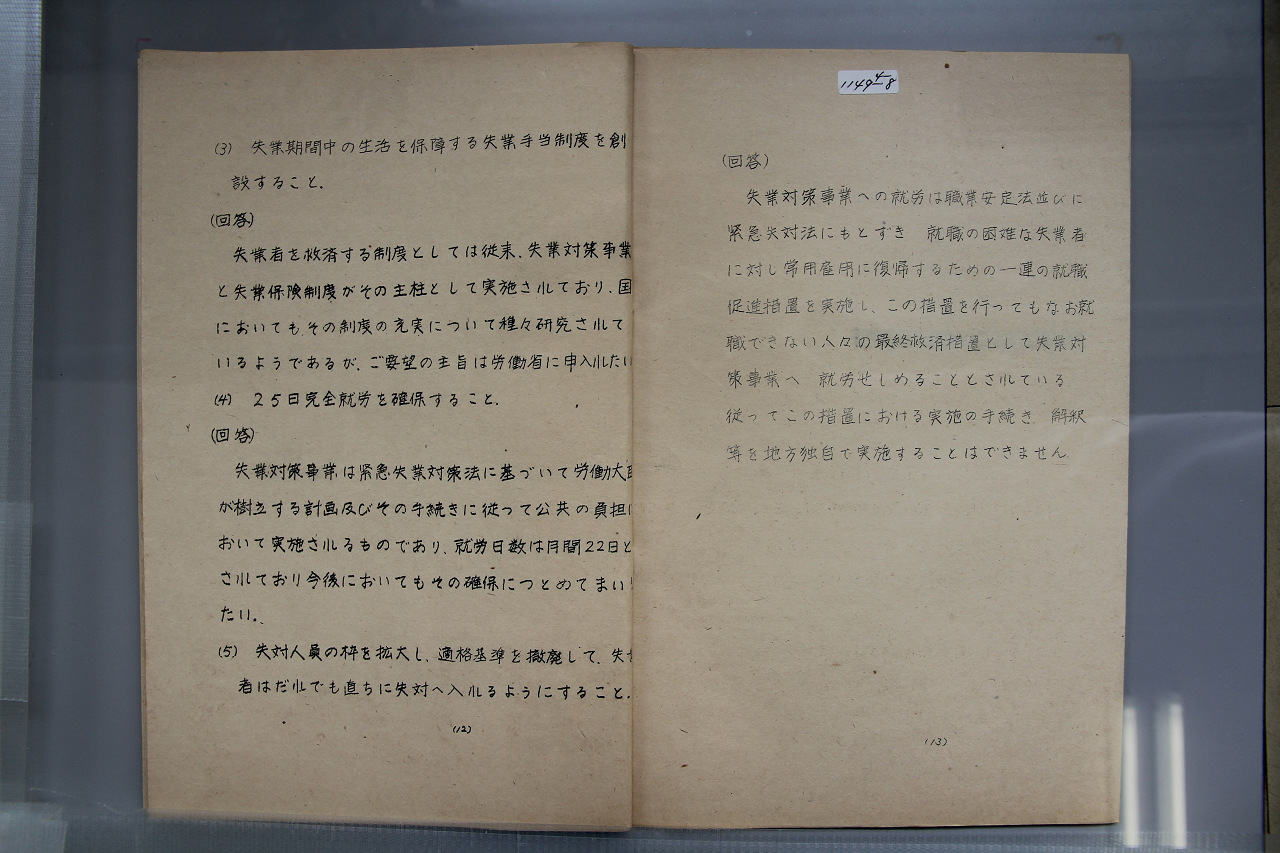 (3) 失業期間中の生活を保障する失業手当制度を創
設すること.
(回答)
失業者を救済する制度としては従来、失業対策事業
と失業保険制度がその主柱として実施されており、国
においても、その制度の充実について種々研究されて
いるようであるが、ご要望の主旨は労働省に申入れたい
(4) 25日完全就労を確保すること.
(回答)
失業対策事業は緊急失業対策法に基づいて労働大
が樹立する計画及びその手続きに従って公共の負担に
おいて実施されるものであり、就労日数は月間22日と
されており今後においてもその確保につとめてまい
たい.
(5) 失対人員の枠を拡大し、適格基準を撤廃して、失
者はだれでも直ちに失対へ入れるようにすること.
(12)
1149 4-8
(回答)
失業対策事業への就労は職業安定法並びに
緊急失対法にもとずき 就職の困難な失業者
に対し常用雇用に復帰するための一連の就職
促進措置を実施し、この措置を行ってもなお就
職できない人々の最終救済措置として失業対
策事業へ 就労せしめることとされている
従ってこの措置における実施の手続き 解釈
等を地方独自で実施することはできません
(13)